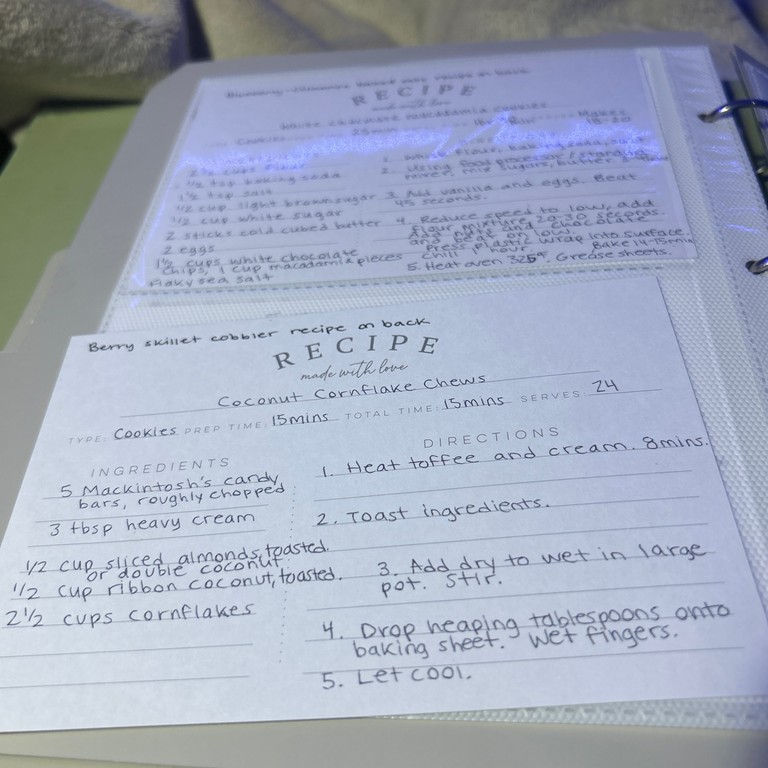 RECIPE
made with love
White chocolate macadamia cookies
1/2 tsp baking soda
1 1/2 tsp salt
1/2 cup light brown sugar
1/2 cup white sugar
2 sticks cold cubed butter
2 eggs
1 1/2 cups white chocolate
chips, 1 cup macadamia pieces
flaky sea salt
3. Add vanilla and eggs. Beat
45 seconds.
4. Reduce speed to low, add
flour mixture, 20-30 seconds.
Add nuts and chocolate
and beat on low.
Press plastic wrap into surface.
chill hour. Bake 14-15min
5. Heat oven 325°. Grease sheets.
Berry skillet cobbler recipe on back
RECIPE
made with love
Coconut Cornflake Chews
TYPE: Cookies PREP TIME: 15mins TOTAL TIME: 15mins SERVES: 24
INGREDIENTS
5 Mackintosh's candy
bars, roughly chopped
3 tbsp heavy cream
1/2 cup sliced almonds, toasted.
or double coconut.
1/2 cup ribbon coconut, toasted.
2 1/2 cups cornflakes
DIRECTIONS
1. Heat toffee and cream. 8mins.
2. Toast ingredients.
3. Add dry to wet in large
pot. Stir.
4. Drop heaping tablespoons onto
baking sheet. Wet fingers.
5. Let cool.